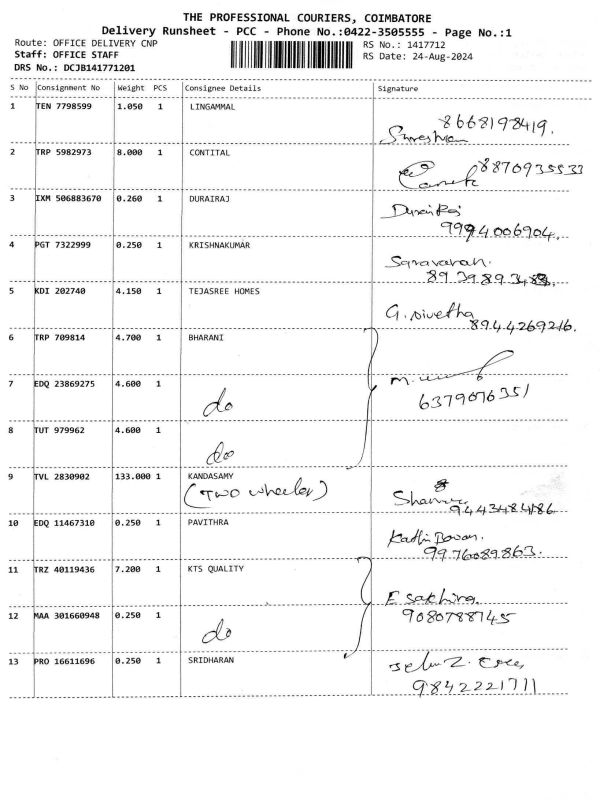 THE PROFESSIONAL COURIERS, COIMBATORE
Delivery Runsheet - PCC - Phone No.:0422-3505555 - Page No.:1
Route: OFFICE DELIVERY CNP RS No.: 1417712
Staff: OFFICE STAFF RS Date: 24-Aug-2024
DRS No.: DCJB141771201
S No Consignment No Weight PCS Consignee Details Signature
1 TEN 7798599 1.050 1 LINGAMMAL
8668198419.
2 TRP 5982973 8.000 1 CONTITAL
8870935533
3 IXM 506883670 0.260 1 DURAIRAJ
Durai Raj
9994006904.
4 PGT 7322999 0.250 1 KRISHNAKUMAR
Saravanan.
5 KDI 202740 4.150 1 TEJASREE HOMES
G. Nivetha
8944269216.
6 TRP 709814 4.700 1 BHARANI
7 EDQ 23869275 4.600 1
do
6379076351
8 TUT 979962 4.600 1
do
9 TVL 2830902 133.000 1 KANDASAMY
(TWO wheeler)
9443484186
10 EDQ 11467310 0.250 1 PAVITHRA
9976089863.
11 TRZ 40119436 7.200 1 KTS QUALITY
E
12 MAA 301660948 0.250 1
do
9080788745
13 PRO 16611696 0.250 1 SRIDHARAN
9842221711